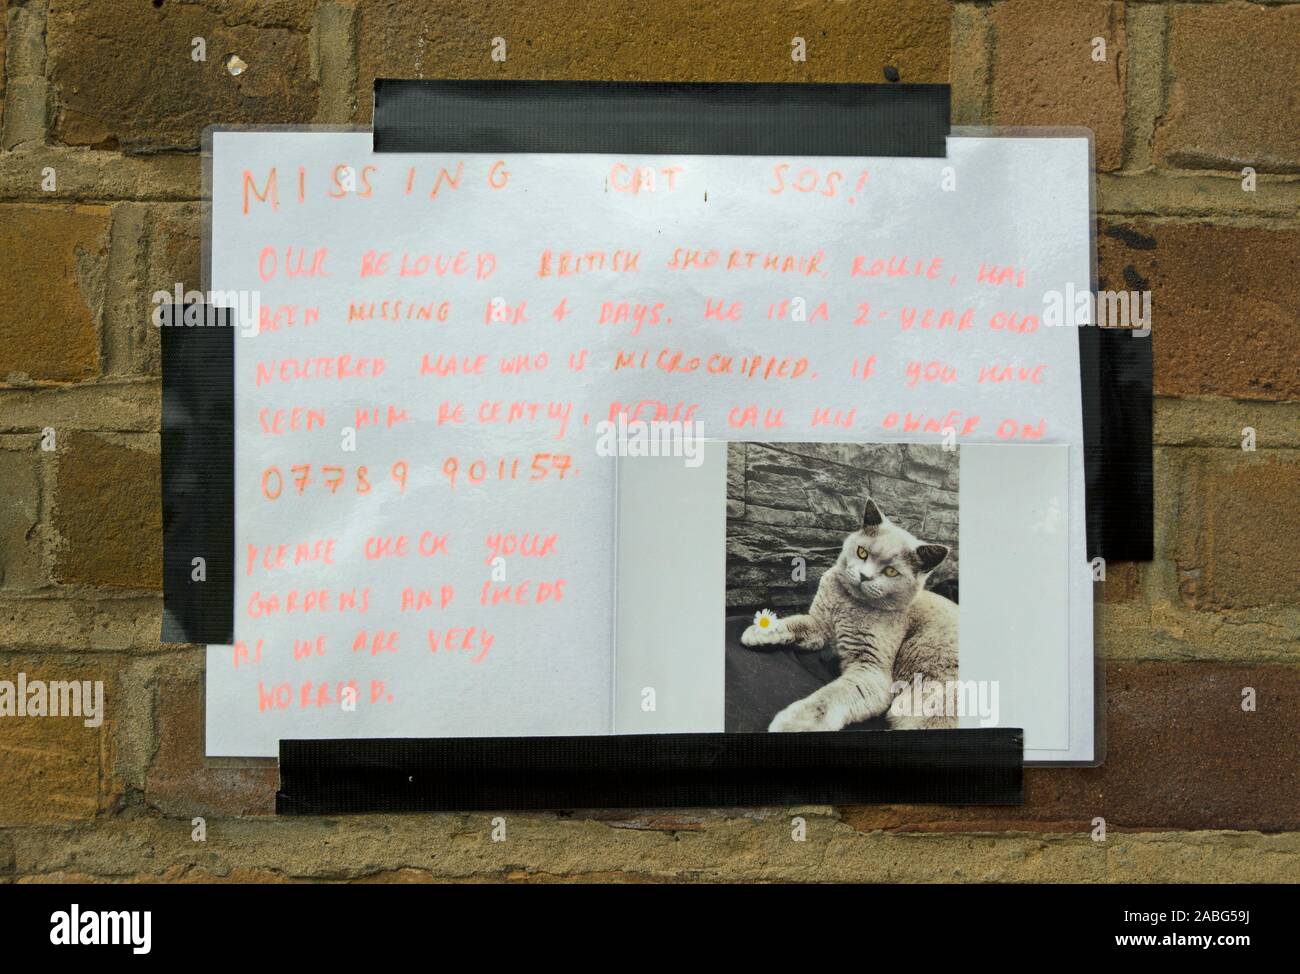 MISSING CAT, SOS!
OUR BELOVED BRITISH SHORTHAIR, ROLLIE, HAS
BEEN MISSING FOR 4 DAYS. HE IS A 2-YEAR OLD
NEUTERED MALE WHO IS MICROCHIPPED. IF YOU HAVE
SEEN HIM RECENTLY, PLEASE CALL HIS OWNER ON
07789 901157.
PLEASE CHECK YOUR
GARDENS AND SHEDS
AS WE ARE VERY
WORRIED.
alamy
a
Image ID: 2ABG59J
www.alamy.com